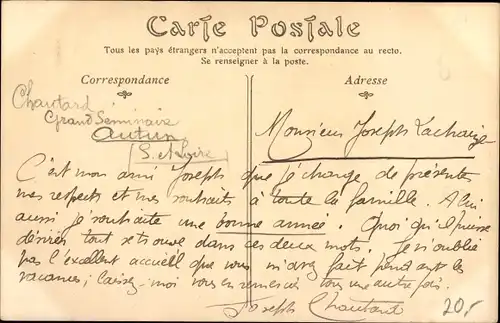 Carte Postale
Tous les pays étrangers n'acceptent pas la correspondance au recto.
Se renseigner à la poste.
Correspondance
Adresse
Chautard
Grand Séminaire
Autun
S. et Loire
Monsieur Joseph Lachaize
C'est mon ami Joseph que je charge de présenter
mes respects et mes souhaits à toute la famille. A lui
aussi je souhaite une bonne année. Quoi qu'il puisse
désirer tout se trouve dans ces deux mots. Je n'oublie
pas l'excellent accueil que vous m'avez fait pendant les
vacances; laissez-moi vous en remercier tous une autre fois.
Joseph Chautard
20.-